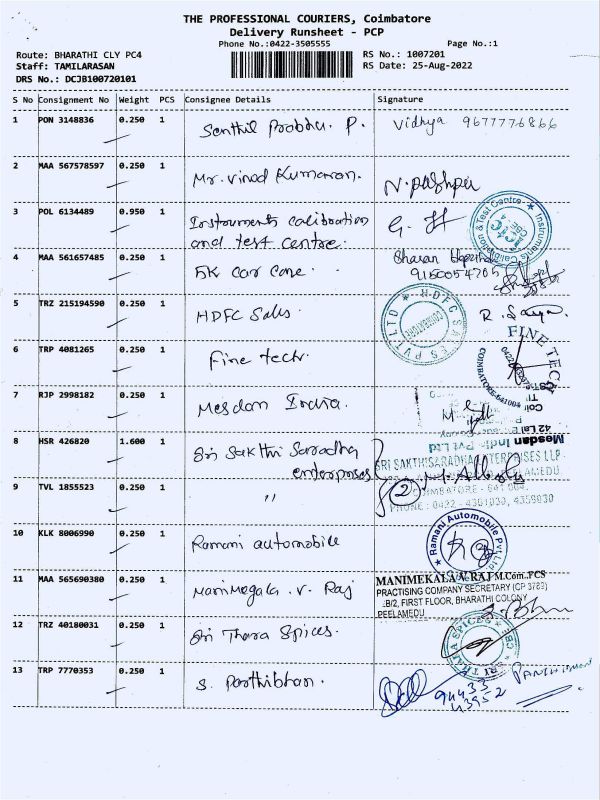 THE PROFESSIONAL COURIERS, Coimbatore
Delivery Runsheet - PCP
Phone No.:0422-3505555
Page No.:1
Route: BHARATHI CLY PC4
RS No.: 1007201
Staff: TAMILARASAN
RS Date: 25-Aug-2022
DRS No.: DCJB100720101
S No Consignment No Weight PCS Consignee Details Signature
1 PON 3148836 0.250 1 Senthil Prabhu. P. Vidhya 9677776866
2 MAA 567578597 0.250 1 Mr. Vinod Kumaran. N. pushpa
3 POL 6134489 0.950 1 Instruments calibration
and test centre.
Instruments Calibration & Test Centre
4 MAA 561657485 0.250 1 5K car care. Sharan
9150054705
5 TRZ 215194590 0.250 1 HDFC Sales.
HDFC SALES PVT LTD
COIMBATORE
6 TRP 4081265 0.250 1 Fine tech.
FINE TECH
COIMBATORE-641004
7 RJP 2998182 0.250 1 Mesdan India.
Mesdan India Pvt Ltd
8 HSR 426820 1.600 1 Sri Sakthi Saradha
enterprises
SRI SAKTHISARADHA ENTERPRISES LLP
PEELAMEDU
9 TVL 1855523 0.250 1 " 2
COIMBATORE - 641 004.
PHONE : 0422 - 4361030, 4359030
10 KLK 8006990 0.250 1 Ramani automobile
Ramani Automobile Pvt. Ltd
11 MAA 565690380 0.250 1 Manimegala. v. Raj
MANIMEKALA V RAJ M.Com.,FCS
PRACTISING COMPANY SECRETARY (CP 3783)
FIRST FLOOR, BHARATHI COLONY
PEELAMEDU
12 TRZ 40180031 0.250 1 Sri Thara Spices.
SRI THARA SPICES
13 TRP 7770353 0.250 1 S. Parthibhan.
94433
43952